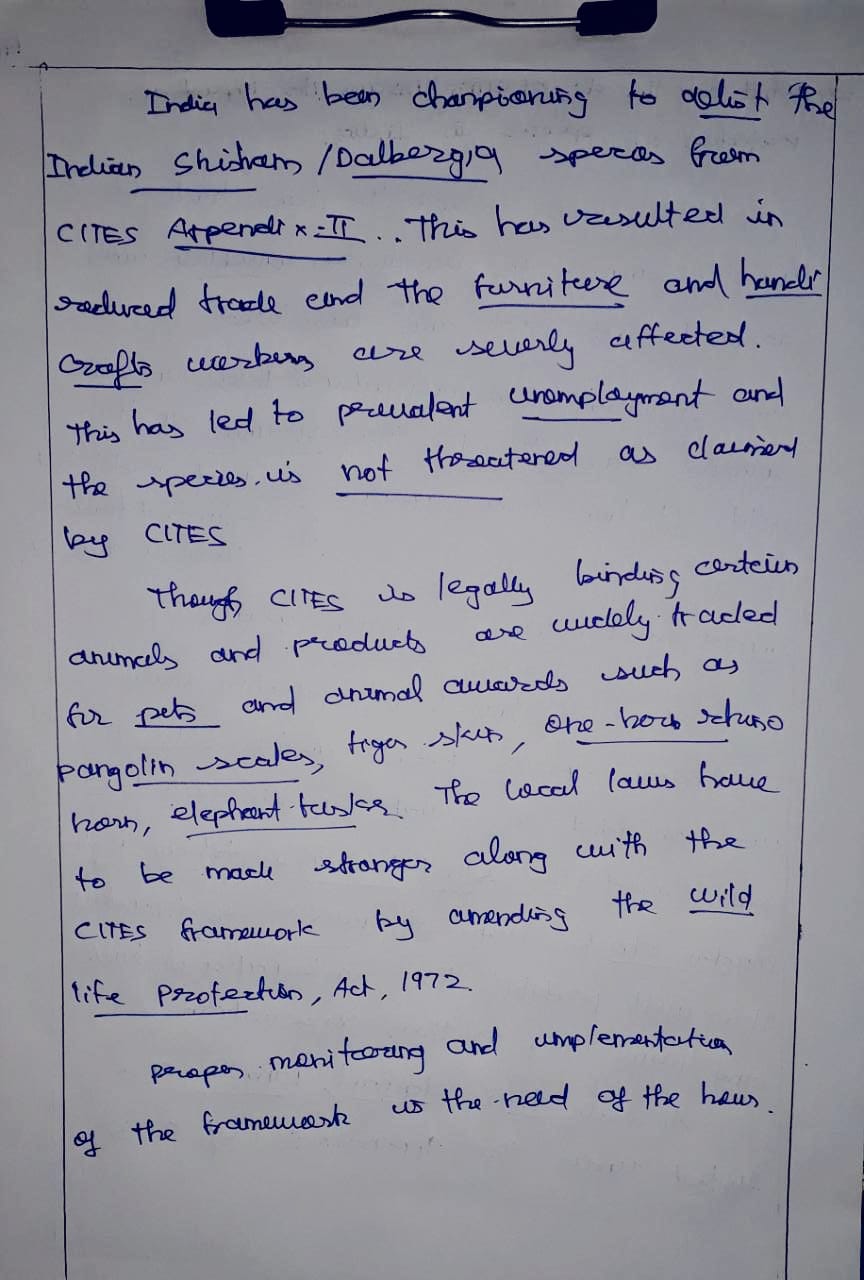 India has been championing to delist the
Indian Shisham / Dalbergia species from
CITES Appendix-II.. This has resulted in
reduced trade and the furniture and handi
crafts workers are severly affected.
This has led to prevalent unemployment and
the species is not threatened as claimed
by CITES
Though CITES is legally binding certain
animals and products are widely traded
for pets and animal awards such as
pangolin scales, tiger skin, one-horn rhino
horn, elephant tusks. The local laws have
to be made stronger along with the
CITES framework by amending the wild
life Protection, Act, 1972.
Proper monitoring and implementation
of the framework is the need of the hour.